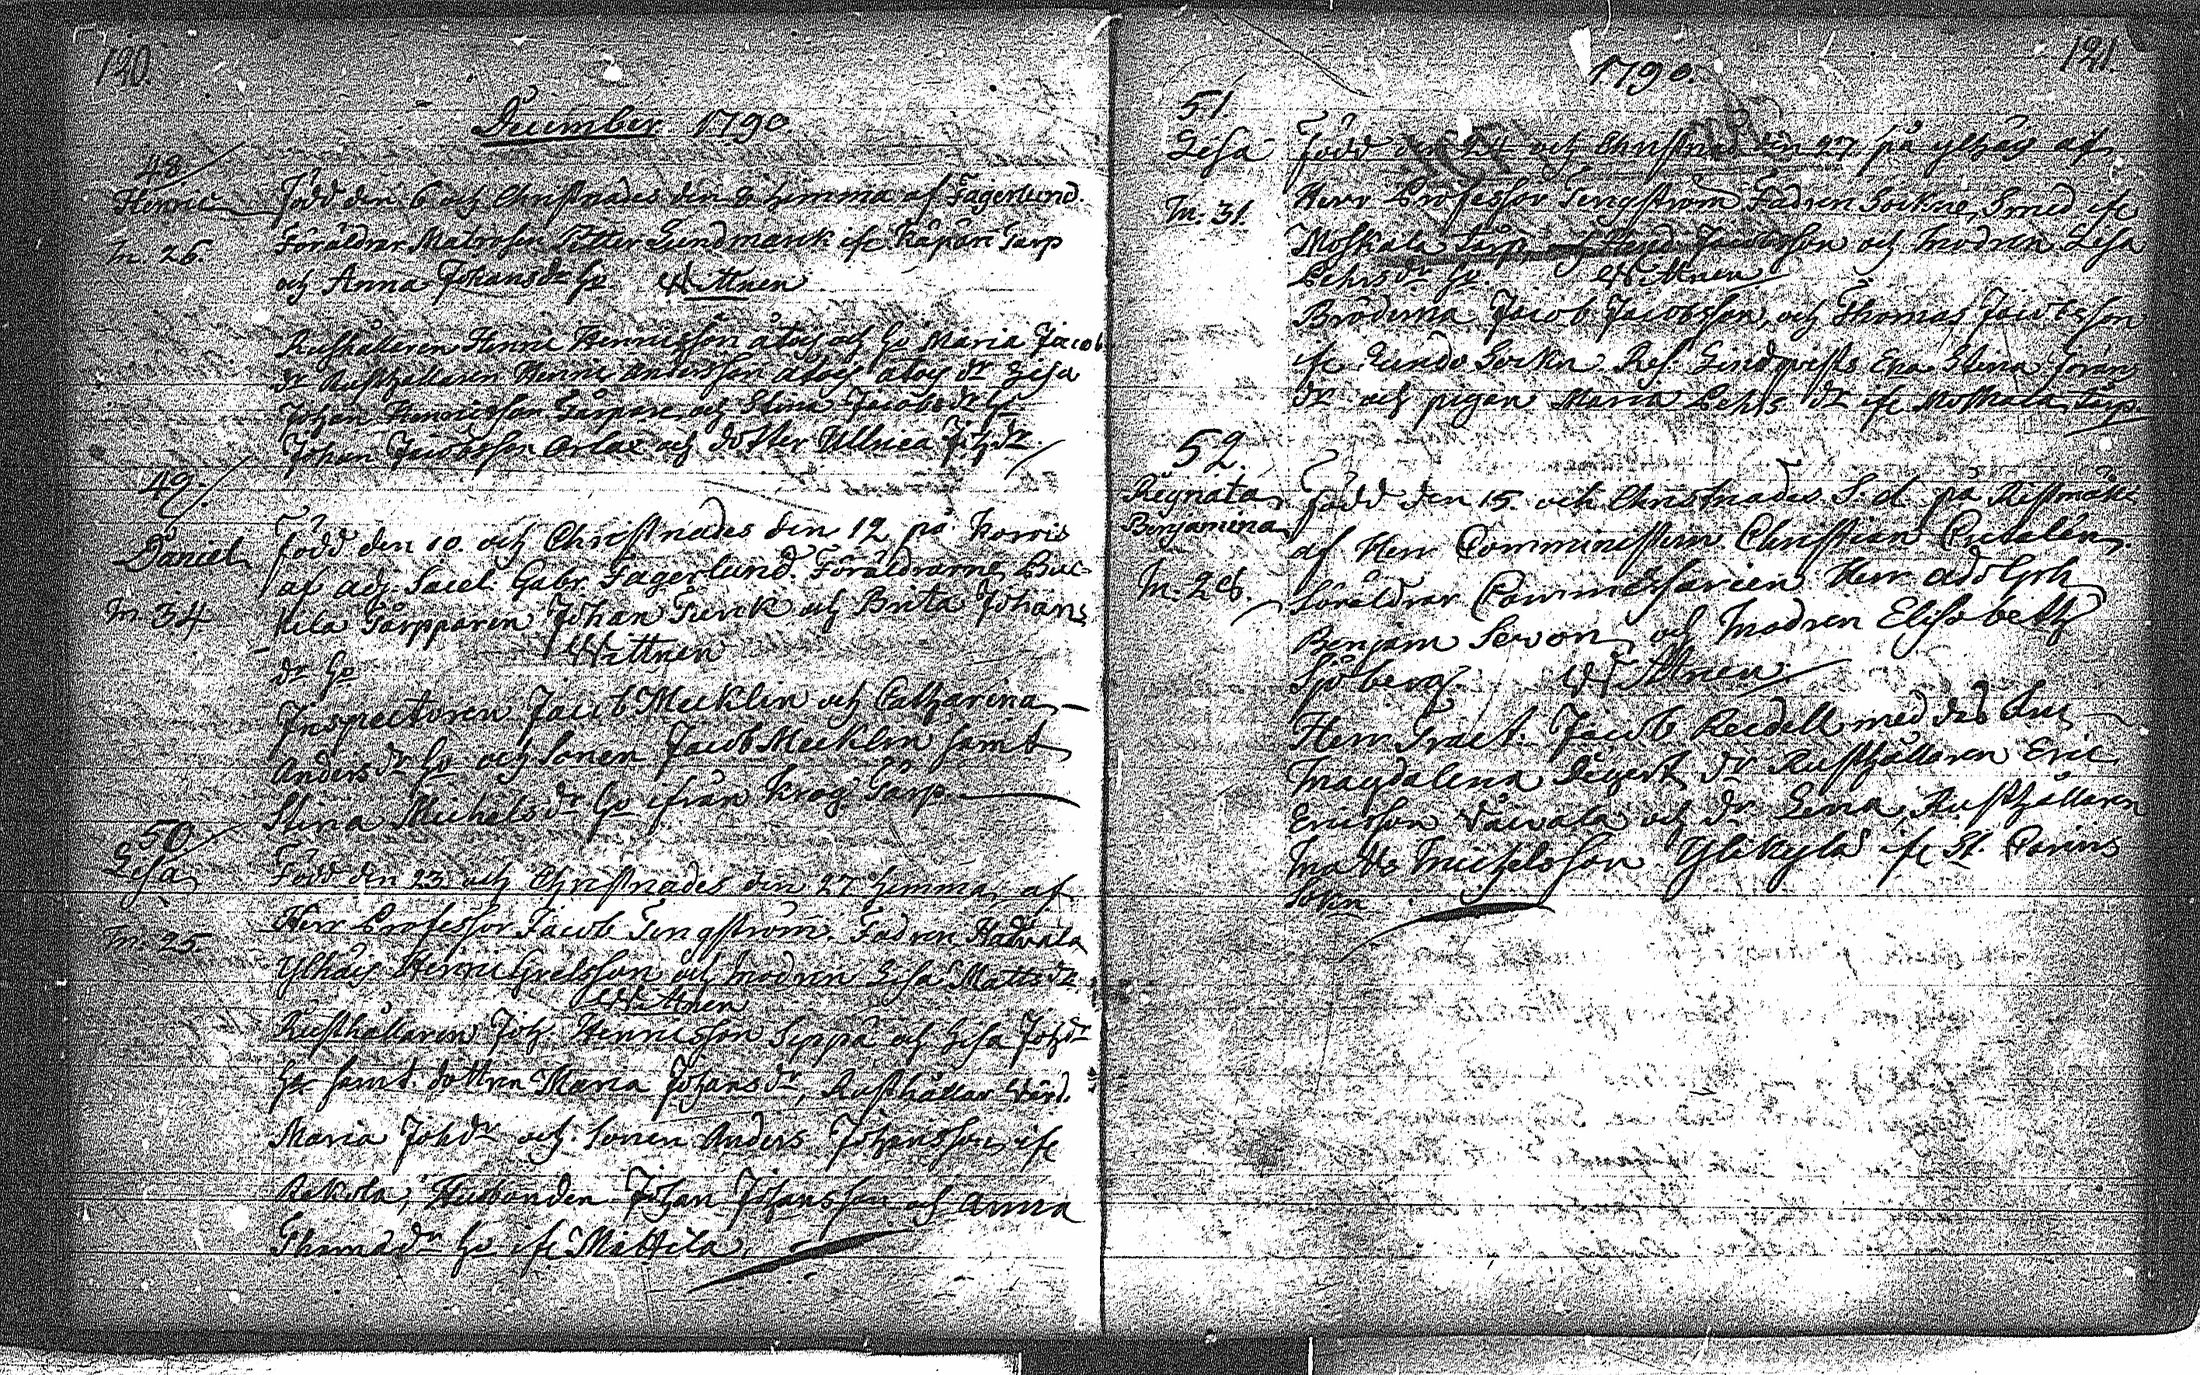 120.
December 1790
48
Henric
M. 26.
Född den 6 och Christnades den 8 hemma af Fagerlund.
Föräldrar Matrosen Petter Lundmark ifr Käpäri Torp
och Anna Johansdr ho Wittnen
Rusthållaren Henric Henricsson och ho Maria Jacobs
dr Rusthållaren Henric Andersson dr Lesa
Johan Henricsson och Stina Jacobsdr ho
Johan Jacobsson och dotter Ullrica Johdr.
49.
Daniel
M. 34
född den 10. och Christnades den 12 på Korvis
af adj. Sacel. Gabr. Fagerlund. Föräldrarne Buc-
kila Torpparen Johan Turck och Brita Johans
dr ho Wittnen
Inspectoren Jacob Mecklin och Catharina
Anders dr ho och Sonen Jacob Mecklin samt
Stina Michels dr ho ifrån Krog Torp
50
Lesa
M. 25.
Född den 23 och Christnades den 27 hemma af
Herr Professor Jacob Tengström. Fadren
Ylhäis Henric Grelsson och Modren Lesa Matts dr
Wittnen
Rusthållaren Joh. Henricsson Seppä och Lesa Johdr
ho samt dottren Maria Johans dr, Rusthållar Värd.
Maria Johdr och Sonen Anders Johansson ifr
Rekola, Husbonden Johan Johansson och Anna
Thomadr ho ifr Mattila.
121.
1790.
51
Lesa
M. 31.
Född den 24 och Christnad den 27 på ylhäis af
Herr Professor Tengström Fadren Sockne Smed ifr
Moskala Torp, Jacobsson och Modren Lesa
Lehrs dr ho. Wittnen
Bröderna Jacob Jacobsson, och Thomas Jacobsson
ifr Lundo Sockn. Ref. Lindqvists Eva Stina Göran
dr och pigan Maria Lehrs dr ifr Moskala torp.
52.
Regnata
Benjamina
M. 28.
född den 15. och Christnades S. d. på Ristmäki
af Herr Communistern Christian Cutalén.
föräldrar Commissarien Herr Adolph
Benjam Sevon och Modren Elisabeth
Sjöberg Wittnen
Herr Tract. Jacob Reidell med dess fru
Magdalena Degert dr Rusthållaren Eric
Ericsson och dr Lena, Rusthållaren
Matts Michelsson Ylikylä ifr St. Carins
Sokn